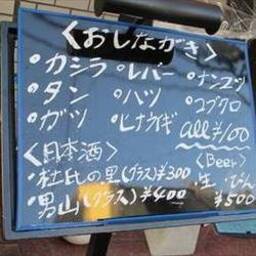 〈おしながき〉
・カシラ ・レバー ・ナンコツ
・タン ・ハツ ・コブクロ
・ガツ ・ヒナウイギ all¥100
〈日本酒〉 〈Beer〉
・杜氏の里(グラス)¥300 ・生・びん
・男山(グラス)¥400 ¥500